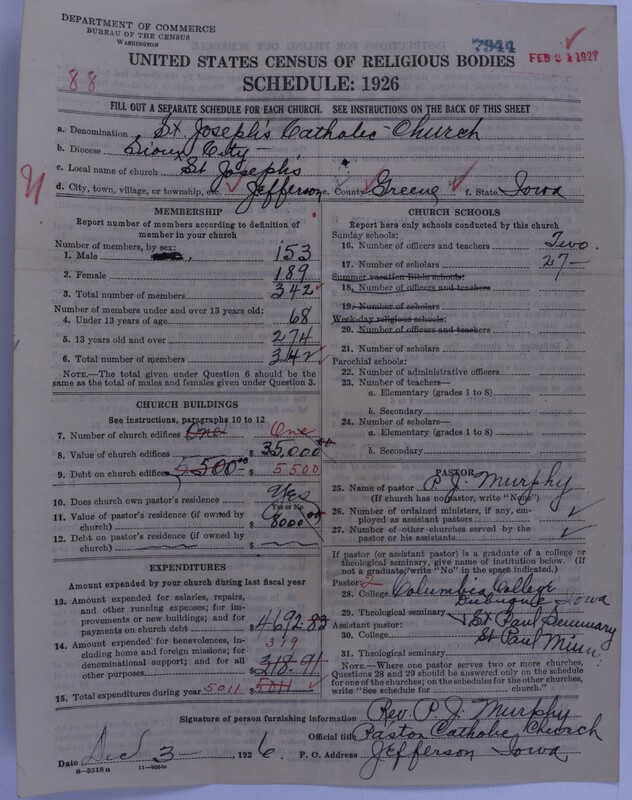 DEPARTMENT OF COMMERCE
BUREAU OF THE CENSUS
WASHINGTON
7944
FEB 21 1927
UNITED STATES CENSUS OF RELIGIOUS BODIES
88
SCHEDULE: 1926
FILL OUT A SEPARATE SCHEDULE FOR EACH CHURCH. SEE INSTRUCTIONS ON THE BACK OF THIS SHEET
a. Denomination St Joseph's Catholic Church
b. Diocese Sioux City
c. Local name of church St Joseph's
d. City, town, village, or township, etc. Jefferson e. County Greene f. State Iowa
MEMBERSHIP
Report number of members according to definition of
member in your church
Number of members, by sex:
1. Male 153
2. Female 189
3. Total number of members 342
Number of members under and over 13 years old:
4. Under 13 years of age 68
5. 13 years old and over 274
6. Total number of members 342
NOTE.—The total given under Question 6 should be
same as the total of males and females given under Question 3.
CHURCH BUILDINGS
See instructions, paragraphs 10 to 12
7. Number of church edifices One One
8. Value of church edifices $ 35,000 00
9. Debt on church edifices 5500 00 $ 5500
10. Does church own pastor's residence Yes
Yes or No
11. Value of pastor's residence (if owned by
church) $ 8000 00
12. Debt on pastor's residence (if owned by
church) $
EXPENDITURES
Amount expended by your church during last fiscal year
13. Amount expended for salaries, repairs,
and other running expenses; for im-
provements or new buildings; and for
payments on church debt $ 4692.83
14. Amount expended for benevolences, 319
including home and foreign missions; for
denominational support; and for all
other purposes $ 318.91
15. Total expenditures during year 5011 $ 5011
CHURCH SCHOOLS
Report here only schools conducted by this church
Sunday schools:
16. Number of officers and teachers Two
17. Number of scholars 27
Summer vacation Bible schools:
18. Number of officers and teachers
19. Number of scholars
Week-day religious schools:
20. Number of officers and teachers
21. Number of scholars
Parochial schools:
22. Number of administrative officers
23. Number of teachers—
a. Elementary (grades 1 to 8)
b. Secondary
24. Number of scholars—
a. Elementary (grades 1 to 8)
b. Secondary
PASTOR
25. Name of pastor P. J. Murphy
(If church has no pastor, write "None")
26. Number of ordained ministers, if any, em-
ployed as assistant pastors
27. Number of other churches served by the
pastor or his assistants
If pastor (or assistant pastor) is a graduate of a college or
theological seminary, give name of institution below. (If
not a graduate, write "No" in the space indicated.)
Pastor: 2
28. College Columbia College
Dubuque Iowa
29. Theological seminary St Paul Seminary
Assistant pastor: St Paul Minn
30. College
31. Theological seminary
NOTE.—Where one pastor serves two or more churches,
Questions 28 and 29 should be answered only on the schedule
for one of the churches; on the schedules for the other churches,
write "See schedule for church."
Signature of person furnishing information Rev. P. J. Murphy
Official title Pastor Catholic Church
Date Dec 3 , 1926. P. O. Address Jefferson Iowa
8-5319a